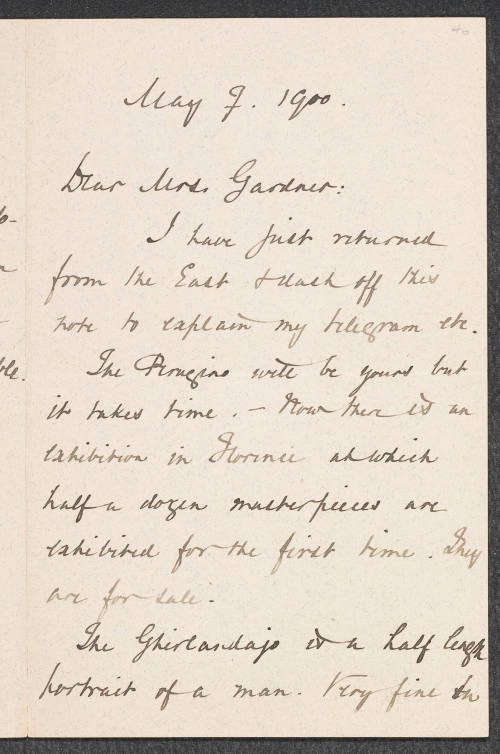 46
May 9. 1900.
Dear Mrs. Gardner:
I have just returned
from the East & dash off this
note to explain my telegram etc.
The Perugino will be yours but
it takes time. - Now there is an
exhibition in Florence at which
half a dozen masterpieces are
exhibited for the first time. They
are for sale.
The Ghirlandajo is a half length
portrait of a man. Very fine in